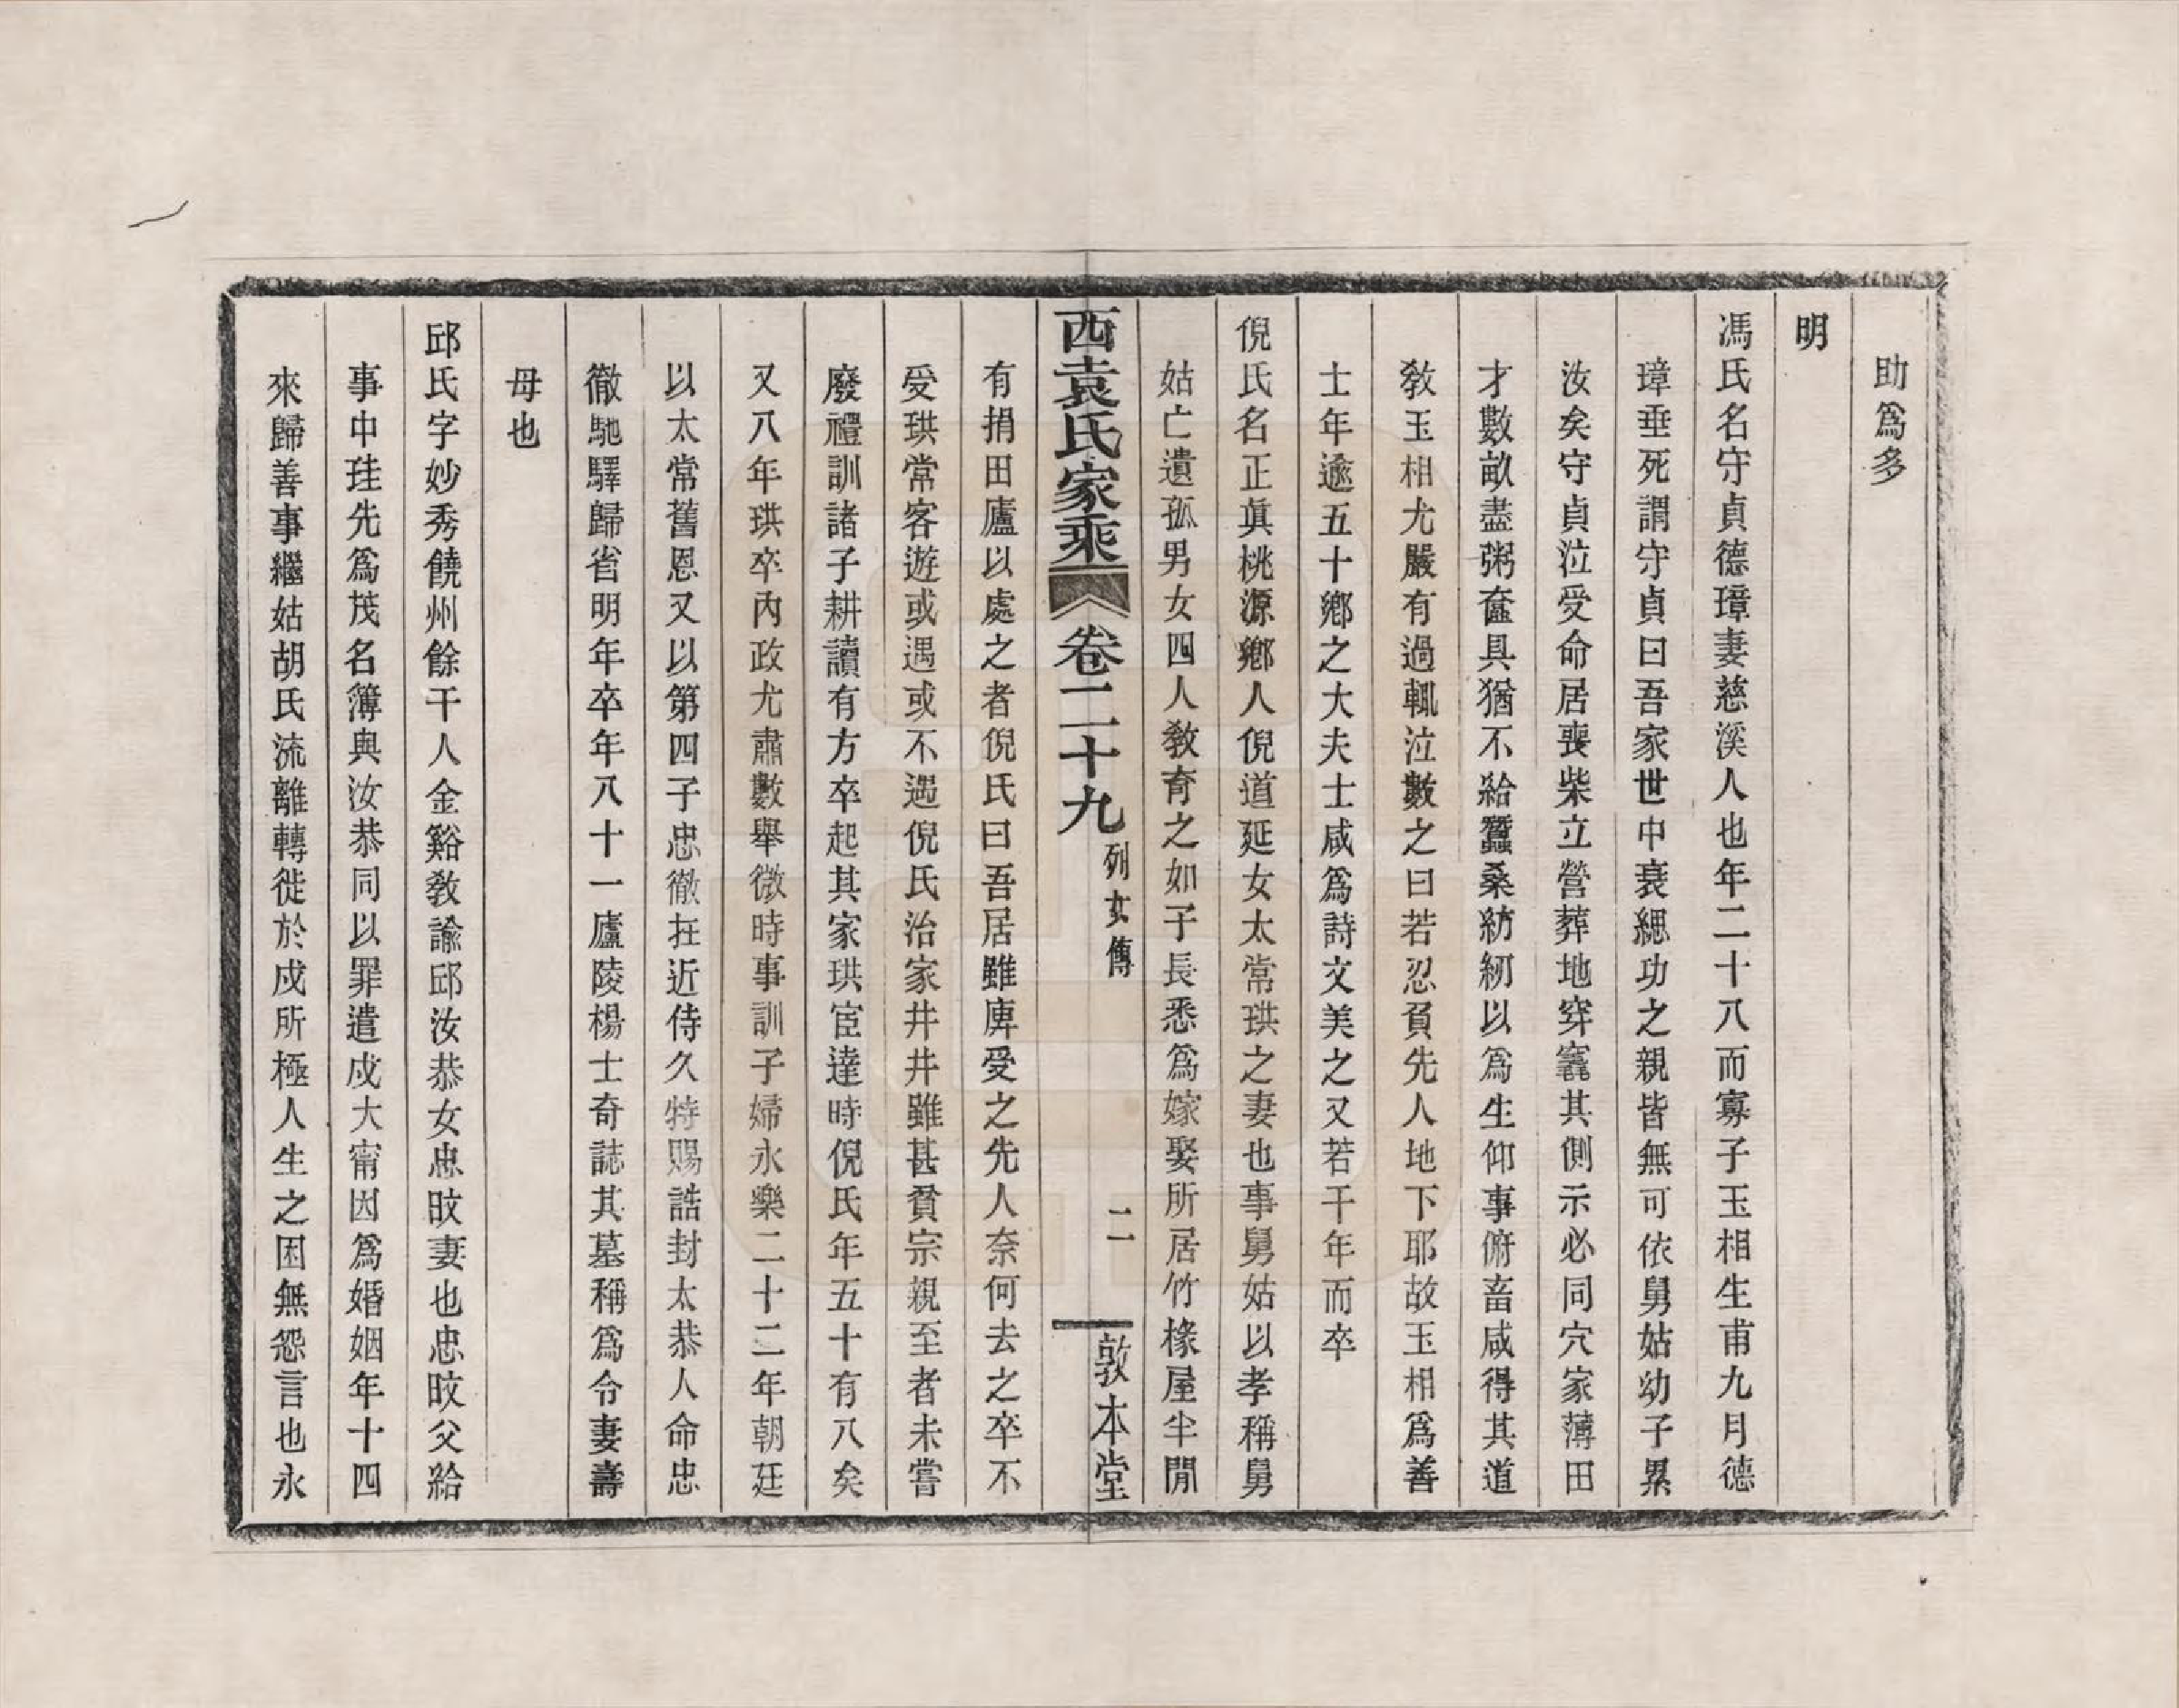 助爲多
明
馮氏名守貞德璋妻慈溪人也年二十八而寡子玉相生甫九月德
璋垂死謂守貞曰吾家世中衰緦功之親皆無可依舅姑幼子累
汝矣守貞泣受命居喪柴立營葬地穿竁其側示必同穴家薄田
才數畝盡粥奩具猶不給蠶桑紡紉以爲生仰事俯畜咸得其道
敎玉相尤嚴有過輒泣數之曰若忍負先人地下耶故玉相爲善
士年逾五十鄉之大夫士咸爲詩文美之又若干年而卒
倪氏名正眞桃源鄉人倪道延女太常珙之妻也事舅姑以孝稱舅
姑亡遺孤男女四人敎育之如子長悉爲嫁娶所居竹椽屋半閒
西袁氏家乘 卷二十九 列女傳 二 敦本堂
有捐田廬以處之者倪氏曰吾居雖庳受之先人奈何去之卒不
受珙常客遊或遇或不遇倪氏治家井井雖甚貧宗親至者未嘗
廢禮訓諸子耕讀有方卒起其家珙宦達時倪氏年五十有八矣
又八年珙卒內政尤肅數舉微時事訓子婦永樂二十二年朝廷
以太常舊恩又以第四子忠徹在近侍久特賜誥封太恭人命忠
徹馳驛歸省明年卒年八十一廬陵楊士奇誌其墓稱爲令妻壽
母也
邱氏字妙秀饒州餘干人金谿敎諭邱汝恭女忠旼妻也忠旼父給
事中珪先爲茂名簿與汝恭同以罪遣戍大甯因爲婚姻年十四
來歸善事繼姑胡氏流離轉徙於戍所極人生之困無怨言也永